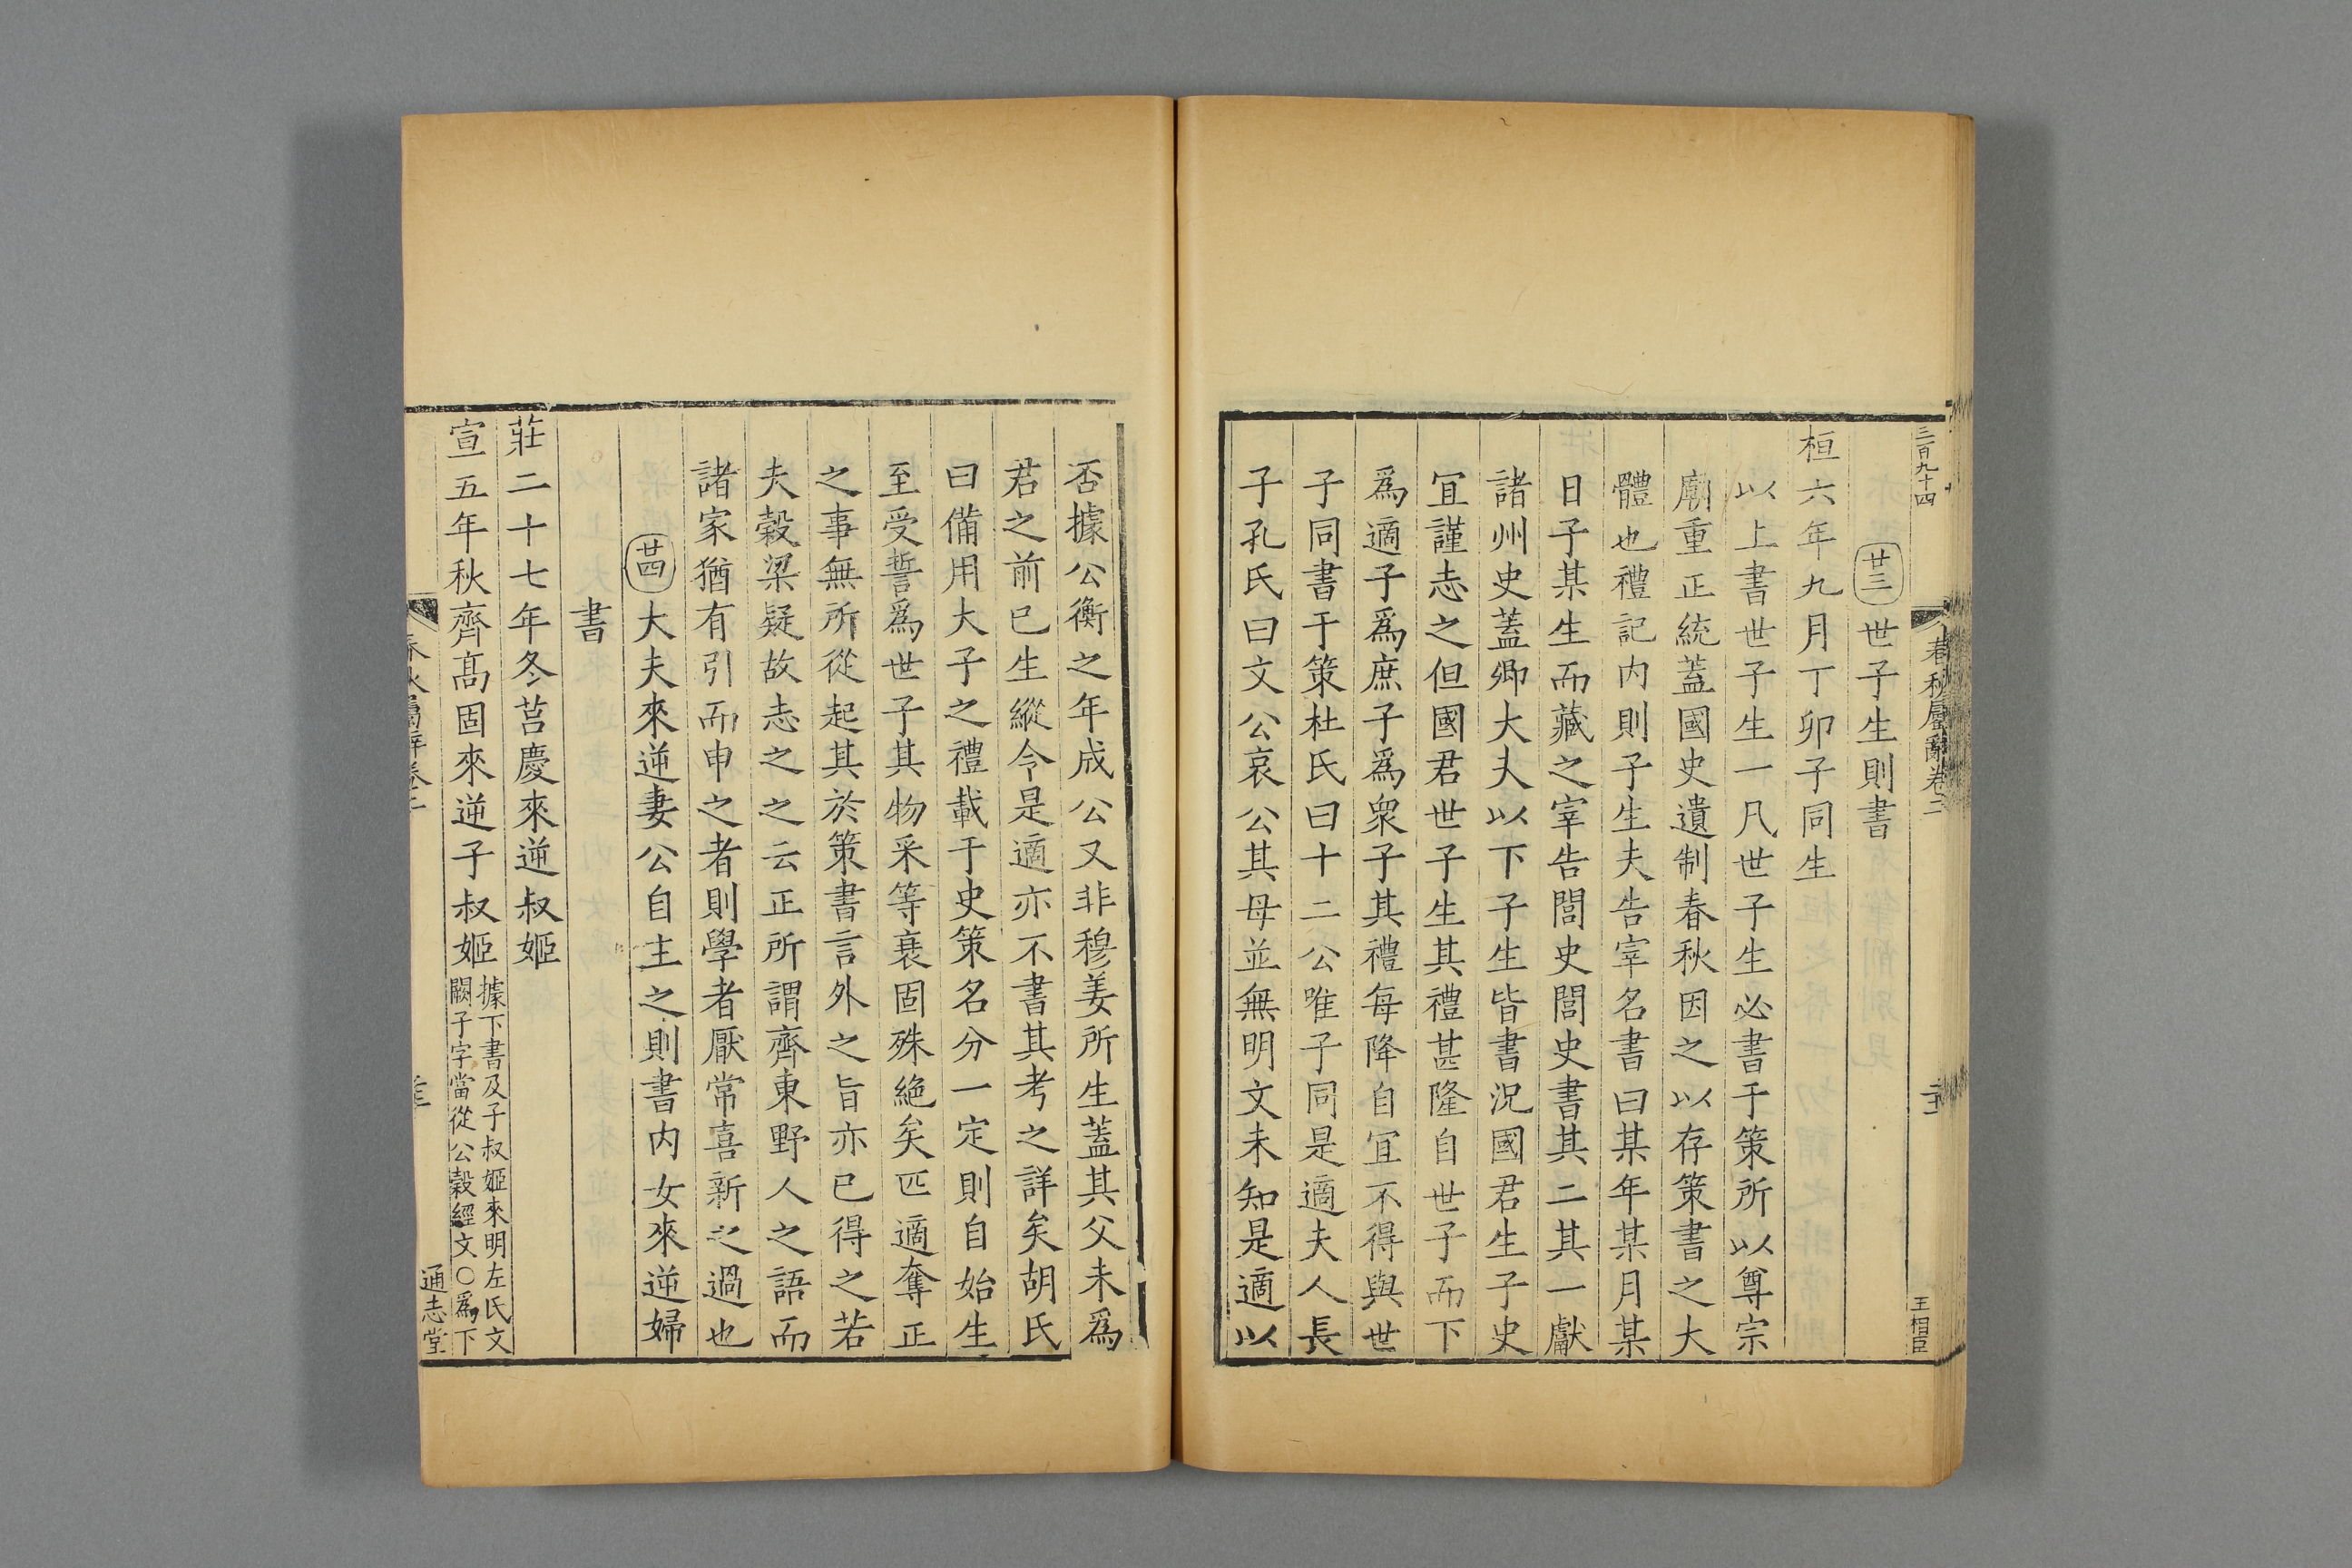 三百九十四
春秋屬辭卷二
王相臣
廿三世子生則書
桓六年九月丁卯子同生
以上書世子生一凡世子生必書于策所以尊宗
廟重正統蓋國史遺制春秋因之以存策書之大
體也禮記内則子生夫告宰名書曰某年某月某
日子某生而藏之宰告閭史閭史書其二其一獻
諸州史蓋卿大夫以下子生皆書況國君生子史
宜謹志之但國君世子生其禮甚隆自世子而下
爲適子爲庶子爲衆子其禮每降自宜不得與世
子同書于策杜氏曰十二公唯子同是適夫人長
子孔氏曰文公哀公其母並無明文未知是適以
否據公衡之年成公又非穆姜所生蓋其父未爲
君之前已生縱令是適亦不書其考之詳矣胡氏
曰備用大子之禮載于史策名分一定則自始生
至受誓爲世子其物采等衰固殊絶矣匹適奪正
之事無所從起其於策書言外之旨亦已得之若
夫穀梁疑故志之之云正所謂齊東野人之語而
諸家猶有引而申之者則學者厭常喜新之過也
廿四大夫來逆妻公自主之則書内女來逆婦
書
莊二十七年冬莒慶來逆叔姬
宣五年秋齊高固來逆子叔姬據下書及子叔姬來明左氏文
闕子字當從公穀經文○爲下
春秋屬辭卷二
通志堂